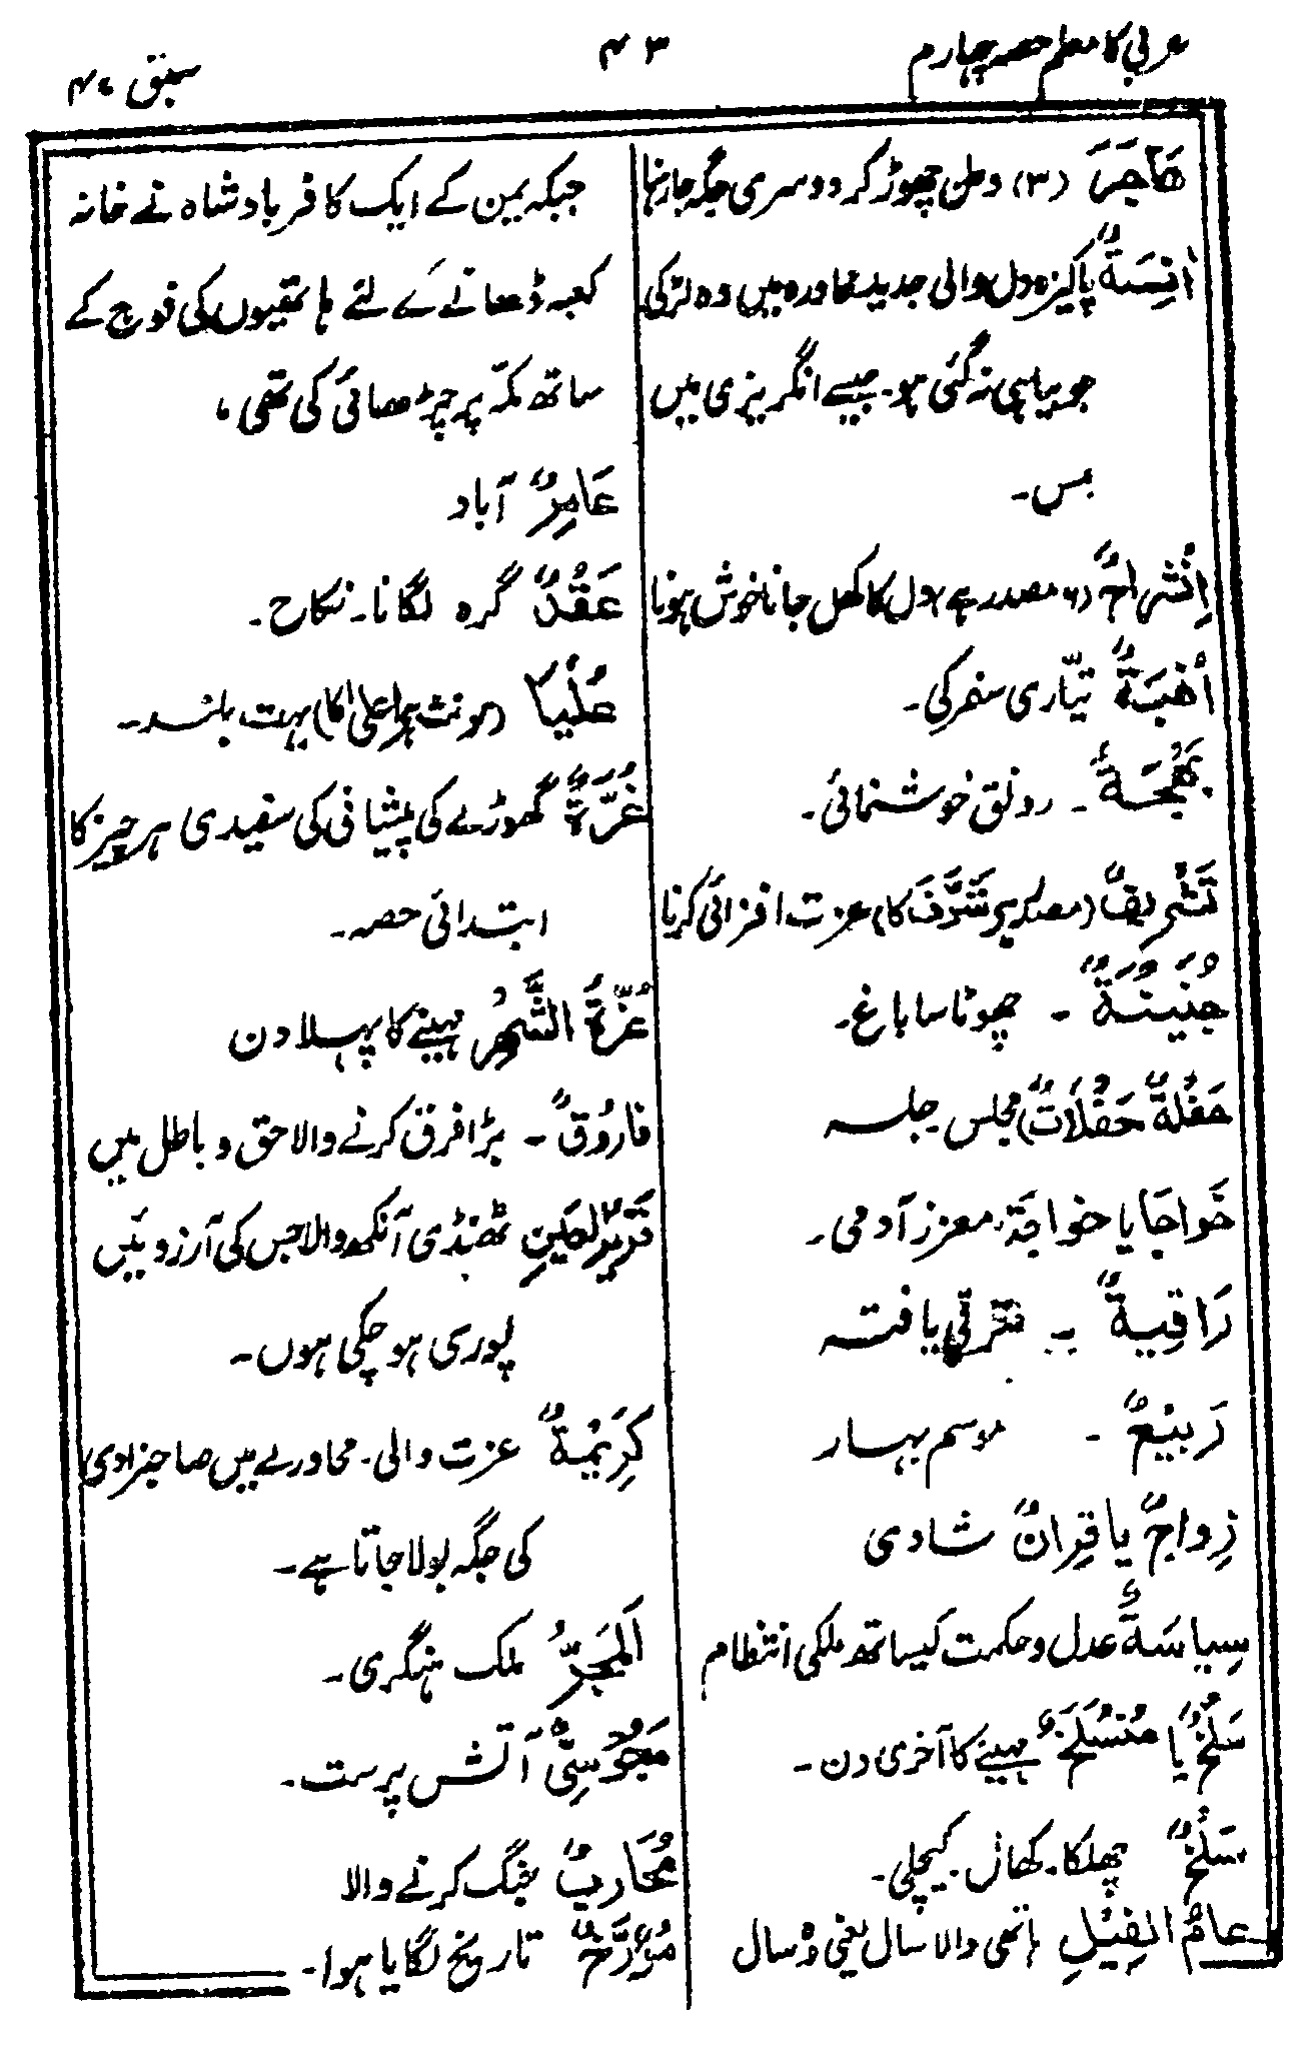 عربی کا معلم حصہ چہارم
۴۳
سبق ۴۷
هَاجَرَ (۳) وطن چھوڑ کر دوسری جگہ جا رہنا
اٰنِسَةٌ پاکیزہ دل والی جدید محاورہ میں وہ لڑکی
جو بیاہی نہ گئی ہو۔ جیسے انگریزی میں
مس۔
اِنْشِراحٌ (۶ مصدر ہے) دل کا کھل جانا خوش ہونا
اُهْبَةٌ تیّاری سفر کی۔
بَهْجَةٌ ۔ رونق خوشنمائی۔
تَشْرِيفٌ (مصدر ہے شَرَّفَ کا) عزت افزائی کرنا
جُنَيْنَةٌ ۔ چھوٹا سا باغ۔
حَفْلَةٌ حَفْلَاتٌ) مجلس جلسہ
خَواجَا یا خواجَة، معزز آدمی۔
رَاقِيةٌ ۔ ترقی یافتہ
رَبِيْعٌ ۔ موسم بہار
زِواجٌ یا قِرانٌ شادی
سِیاسَةٌ عدل و حکمت کیساتھ ملکی انتظام
سَلْخٌ یا مُنْسَلَخٌ مہینے کا آخری دن ۔
سَلْخٌ چھلکا۔ کھال۔ کیچلی۔
عامُ الفِيْلِ ہاتھی والا سال یعنی وہ سال
جبکہ یمن کے ایک کافر بادشاہ نے خانہ
کعبہ ڈھانے کے لئے ہاتھیوں کی فوج کے
ساتھ مکّہ پر چڑھائی کی تھی،
عَامِرٌ آباد
عَقْدٌ گرہ لگانا۔ نکاح۔
عُلْیَا (مونث ہے اعلیٰ کا) بہت بلند۔
غُرَّةٌ گھوڑے کی پیشانی کی سفیدی ہر چیز کا
ابتدائی حصہ۔
غُرَّةُ الشَّهْرِ مہینے کا پہلا دن
فارُوقٌ ۔ بڑا فرق کرنے والا حق و باطل میں
قَرِيْرُ العَيْنِ ٹھنڈی آنکھ والا جس کی آرزوئیں
پوری ہو چکی ہوں۔
كَرِيْمَةٌ عزت والی۔ محاورے میں صاحبزادی
کی جگہ بولا جاتا ہے۔
اَلمَجَرُّ ملک ہنگری۔
مَجُوْسِیٌّ آتش پرست۔
مُحَارِبٌ جنگ کرنے والا
مُؤَرَّخٌ تاریخ لگایا ہوا۔